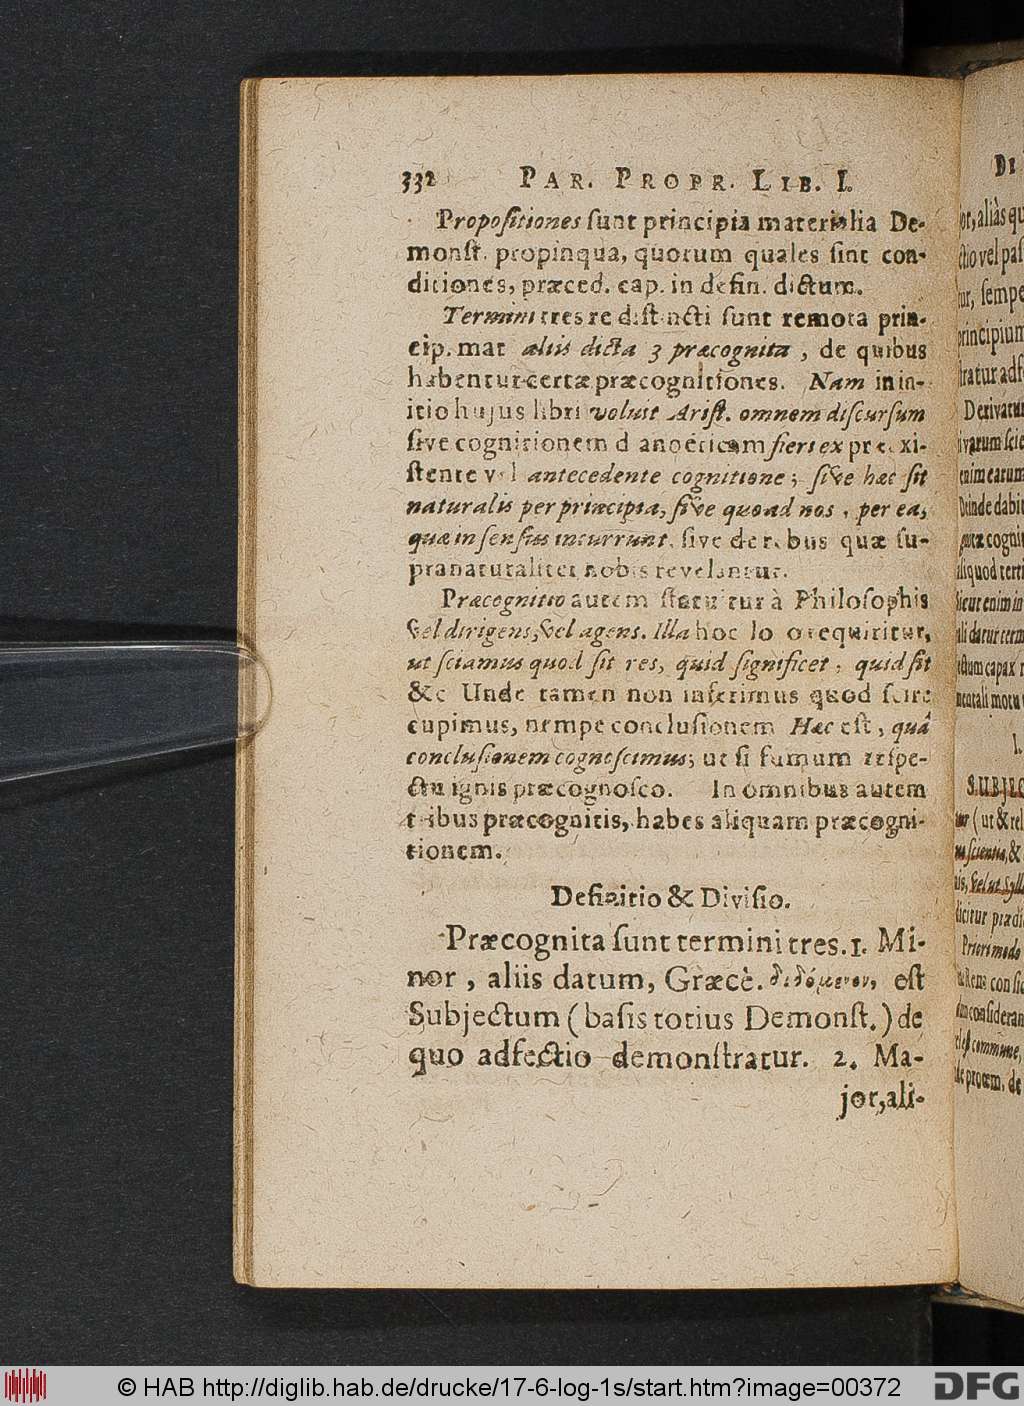 332 PAR. PROPR. LIB. I.
Propositiones sunt principia materialia De-
monst. propinqua, quorum quales sint con-
ditiones, præced. cap. in defin. dictum.
Termini tres re distincti sunt remota prin-
cip. mat aliis dicta 3 præcognita, de quibus
habentur certæ præcognitiones. Nam in in-
itio hujus libri voluit Arist. omnem discursum
sive cognitionem dianoëticam fieri ex præexi-
stente vel antecedente cognitione; sive hæc sit
naturalis per principia, sive quoad nos, per ea,
quæ in sensus incurrunt, sive de rebus quæ su-
pranaturaliter nobis revelantur.
Præcognitio autem statuitur à Philosophis
vel dirigens, vel agens. Illa hoc loco requiritur,
ut sciamus quod sit res, quid significet, quid sit
&c Unde tamen non inferimus quod scire
cupimus, nempe conclusionem Hæc est, quâ
conclusionem cognoscimus; ut si fumum respe-
ctu ignis præcognosco. In omnibus autem
tribus præcognitis, habes aliquam præcogni-
tionem.
Definitio & Divisio.
Præcognita sunt termini tres. 1. Mi-
nor, aliis datum, Græcè. διδόμενον, est
Subjectum (basis totius Demonst.) de
quo adfectio demonstratur. 2. Ma-
jor, ali-
DI
or, aliàs qu
ctio vel pas
tur, sempe
principium
stratur adf
Derivatur
enim earum
Deinde dabit
aliquod terti
Sicut enim in
ctum capax
mentali motu
I.
SUBJEC
(ut & rel
scientia, &
vel ut Syll
dicitur prædi
Priori modo
Rens consid
consideran
est commune,
proœm. de
© HAB http://diglib.hab.de/drucke/17-6-log-1s/start.htm?image=00372
DFG